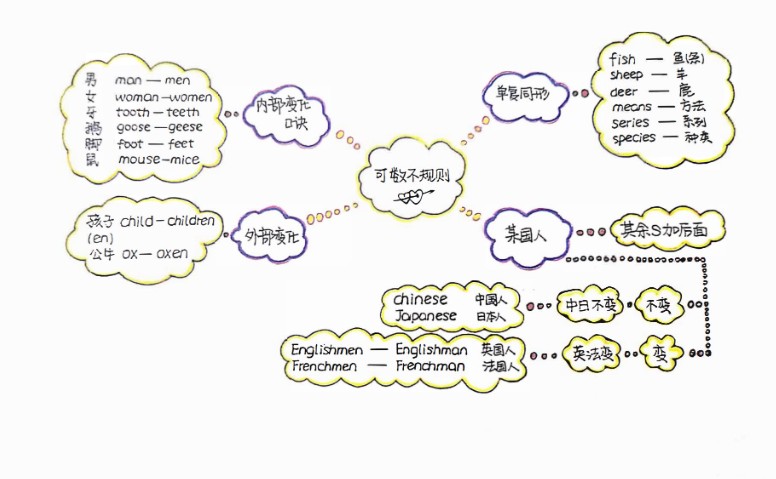 男 man — men
女 woman — women
牙 tooth — teeth
鹅 goose — geese
脚 foot — feet
鼠 mouse — mice
内部变化
口诀
单复同形
fish — 鱼(条)
sheep — 羊
deer — 鹿
means — 方法
series — 系列
species — 种类
可数不规则
孩子 child — children
(en)
公牛 ox — oxen
外部变化
某国人
其余S加后面
chinese 中国人
Japanese 日本人
中日不变
不变
Englishmen — Englishman 英国人
Frenchmen — Frenchman 法国人
英法变
变